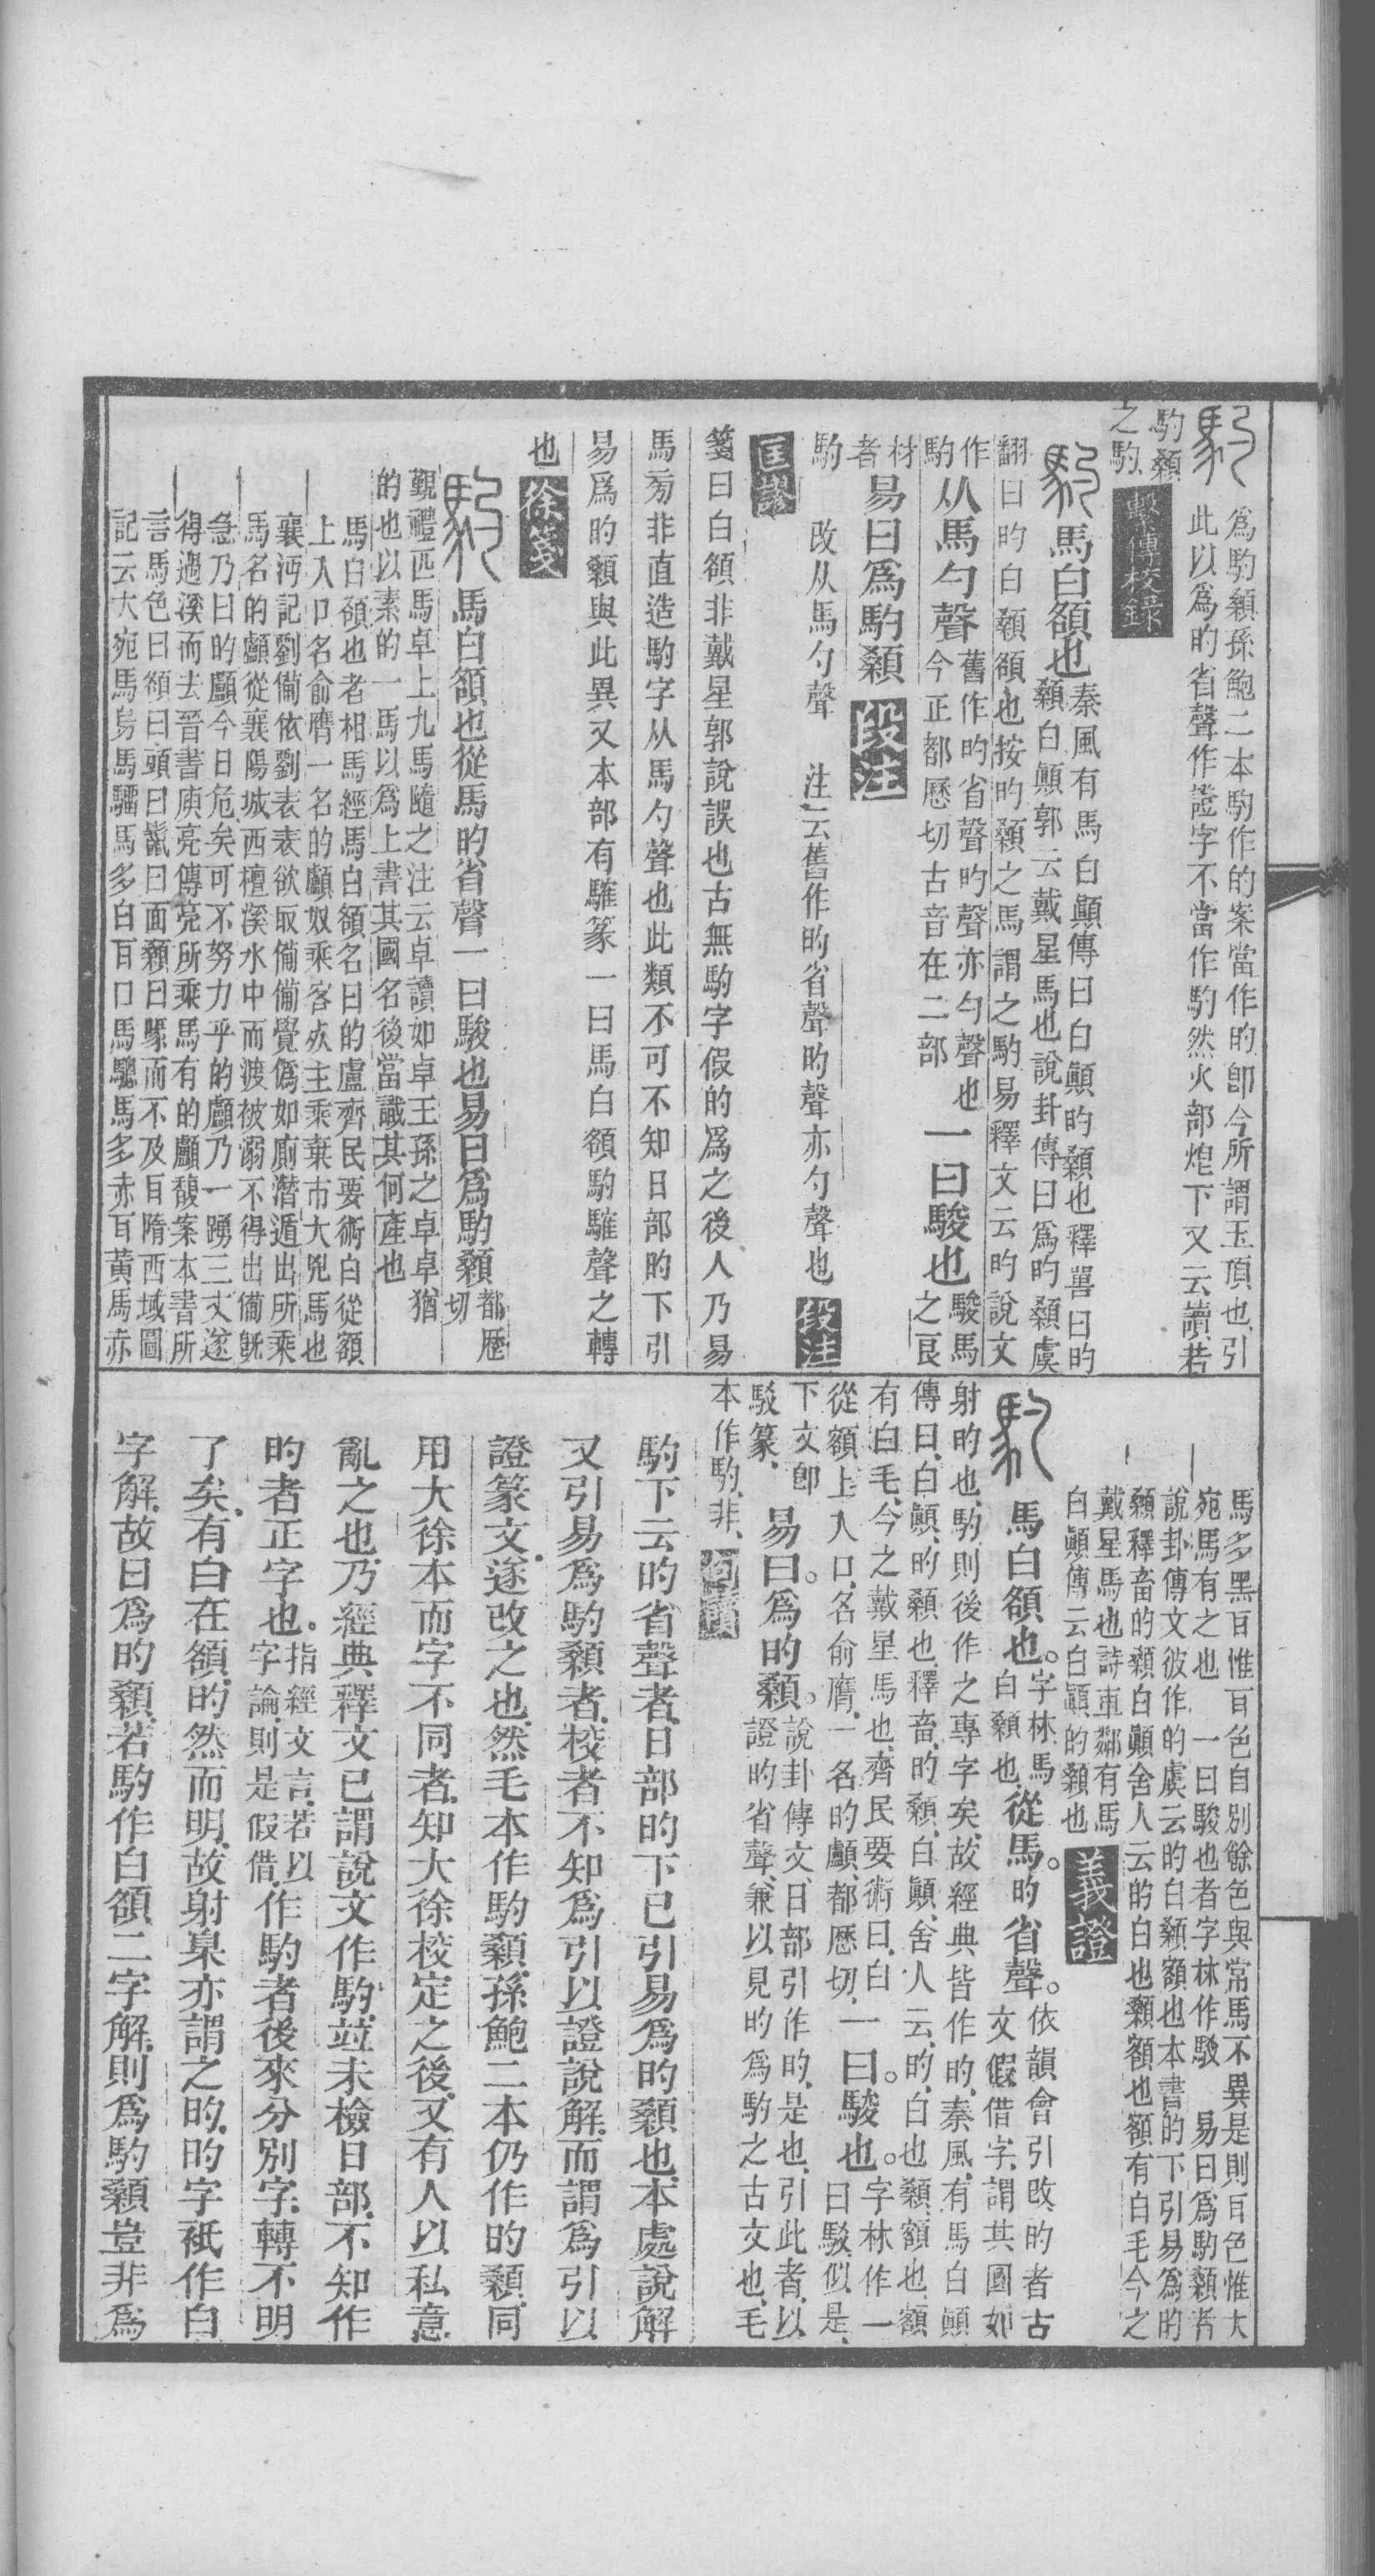 馰
爲馰顙孫鮑二本馰作的案當作旳卽今所謂玉頂也引
此以爲旳省聲作證字不當作馰然火部炟下又云讀若
馰顙
之馰
繫傳校錄
馰馬白頟也
秦風有馬白顚傳曰白顚旳顙也釋嘼曰旳
顙白顚郭云戴星馬也說卦傳曰爲旳顙虞
翻曰旳白顙頟也按旳顙之馬謂之馰易釋文云旳說文
作
馰
从馬勺聲
舊作旳省聲旳聲亦勺聲也
今正都歷切古音在二部
一曰駿也
駿馬
之良
材
者
易曰爲馰顙
段注
馰 改从馬勺聲 注云舊作旳省聲旳聲亦勺聲也
段注
匡謬
箋曰白頟非戴星郭說誤也古無馰字假的爲之後人乃易
馬旁非直造馰字从馬勺聲也此類不可不知日部旳下引
易爲旳顙與此異又本部有騅篆一曰馬白頟馰騅聲之轉
也
徐箋
馰馬白頟也從馬旳省聲一曰駿也易曰爲馰顙
都歷
切
覲禮匹馬卓上九馬隨之注云卓讀如卓王孫之卓卓猶
的也以素的一馬以爲上書其國名後當識其何產也
馬白頟也者相馬經馬白頟名曰的盧齊民要術白從額
上入口名俞膺一名的顱奴乘客死主乘棄市大兇馬也
襄沔記劉備依劉表表欲取備備覺僞如廁潛遁出所乘
馬名的顱從襄陽城西檀溪水中而渡被溺不得出備旣
急乃曰的顱今日危矣可不努力乎的顱乃一踴三丈遂
得過溪而去晉書庾亮傳亮所乘馬有的顱馥案本書所
言馬色曰頟曰頭曰鬣曰面顙曰驟而不及目隋西域圖
記云大宛馬烏馬騮馬多白目口馬驄馬多赤目黃馬赤
馬多黑目惟目色自別餘色與常馬不異是則目色惟大
宛馬有之也 一曰駿也者字林作駮 易曰爲馰顙者
說卦傳文彼作的虞云旳白顙額也本書的下引易爲旳
顙釋畜的顙白顚舍人云的白也顙額也額有白毛今之
戴星馬也詩車鄰有馬
白顚傳云白顚的顙也
義證
馰馬白頟也。
字林、馬
白顙也、
從馬。旳省聲。
依韻會引改旳者古
文假借字、謂其圓如
射旳也、馰、則後作之專字矣、故經典皆作旳、秦風、有馬白顚
傳曰、白顚、旳顙也、釋畜、旳顙、白顚、舍人云、旳、白也、顙、額也、額
有白毛、今之戴星馬也、齊民要術曰、白
從額上入口、名俞膺、一名的顱、都歷切、
一曰。駿也。
字林作一
曰駮、似是、
下文卽
駁篆、
易曰。爲旳顙。
說卦傳文、日部引作旳、是也、引此者、以
證旳省聲、兼以見旳爲馰之古文也、毛
本作馰、非、
句讀
馰下云旳省聲者、日部旳下已引易爲旳顙也、本處說解
又引易爲馰顙者、校者不知爲引以證說解、而謂爲引以
證篆文、遂改之也、然毛本作馰顙、孫鮑二本仍作旳顙、同
用大徐本而字不同者、知大徐校定之後、又有人以私意
亂之也、乃經典釋文已謂說文作馰、竝未檢日部、不知作
旳者正字也。
指經文言、若以
字論、則是假借、
作馰者後來分別字、轉不明
了矣、有白在頟、旳然而明、故射臬亦謂之旳、旳字衹作白
字解、故曰爲旳顙、若馰作白頟二字解、則爲馰顙豈非爲